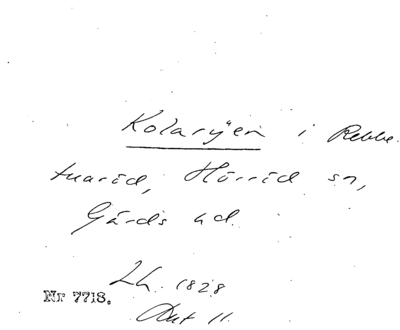 Kolaryen i Rebbe-
tuaröd, Hörröd sn,
Gärds hd.
Lh. 1828
Nr 7718.
Akt 11.